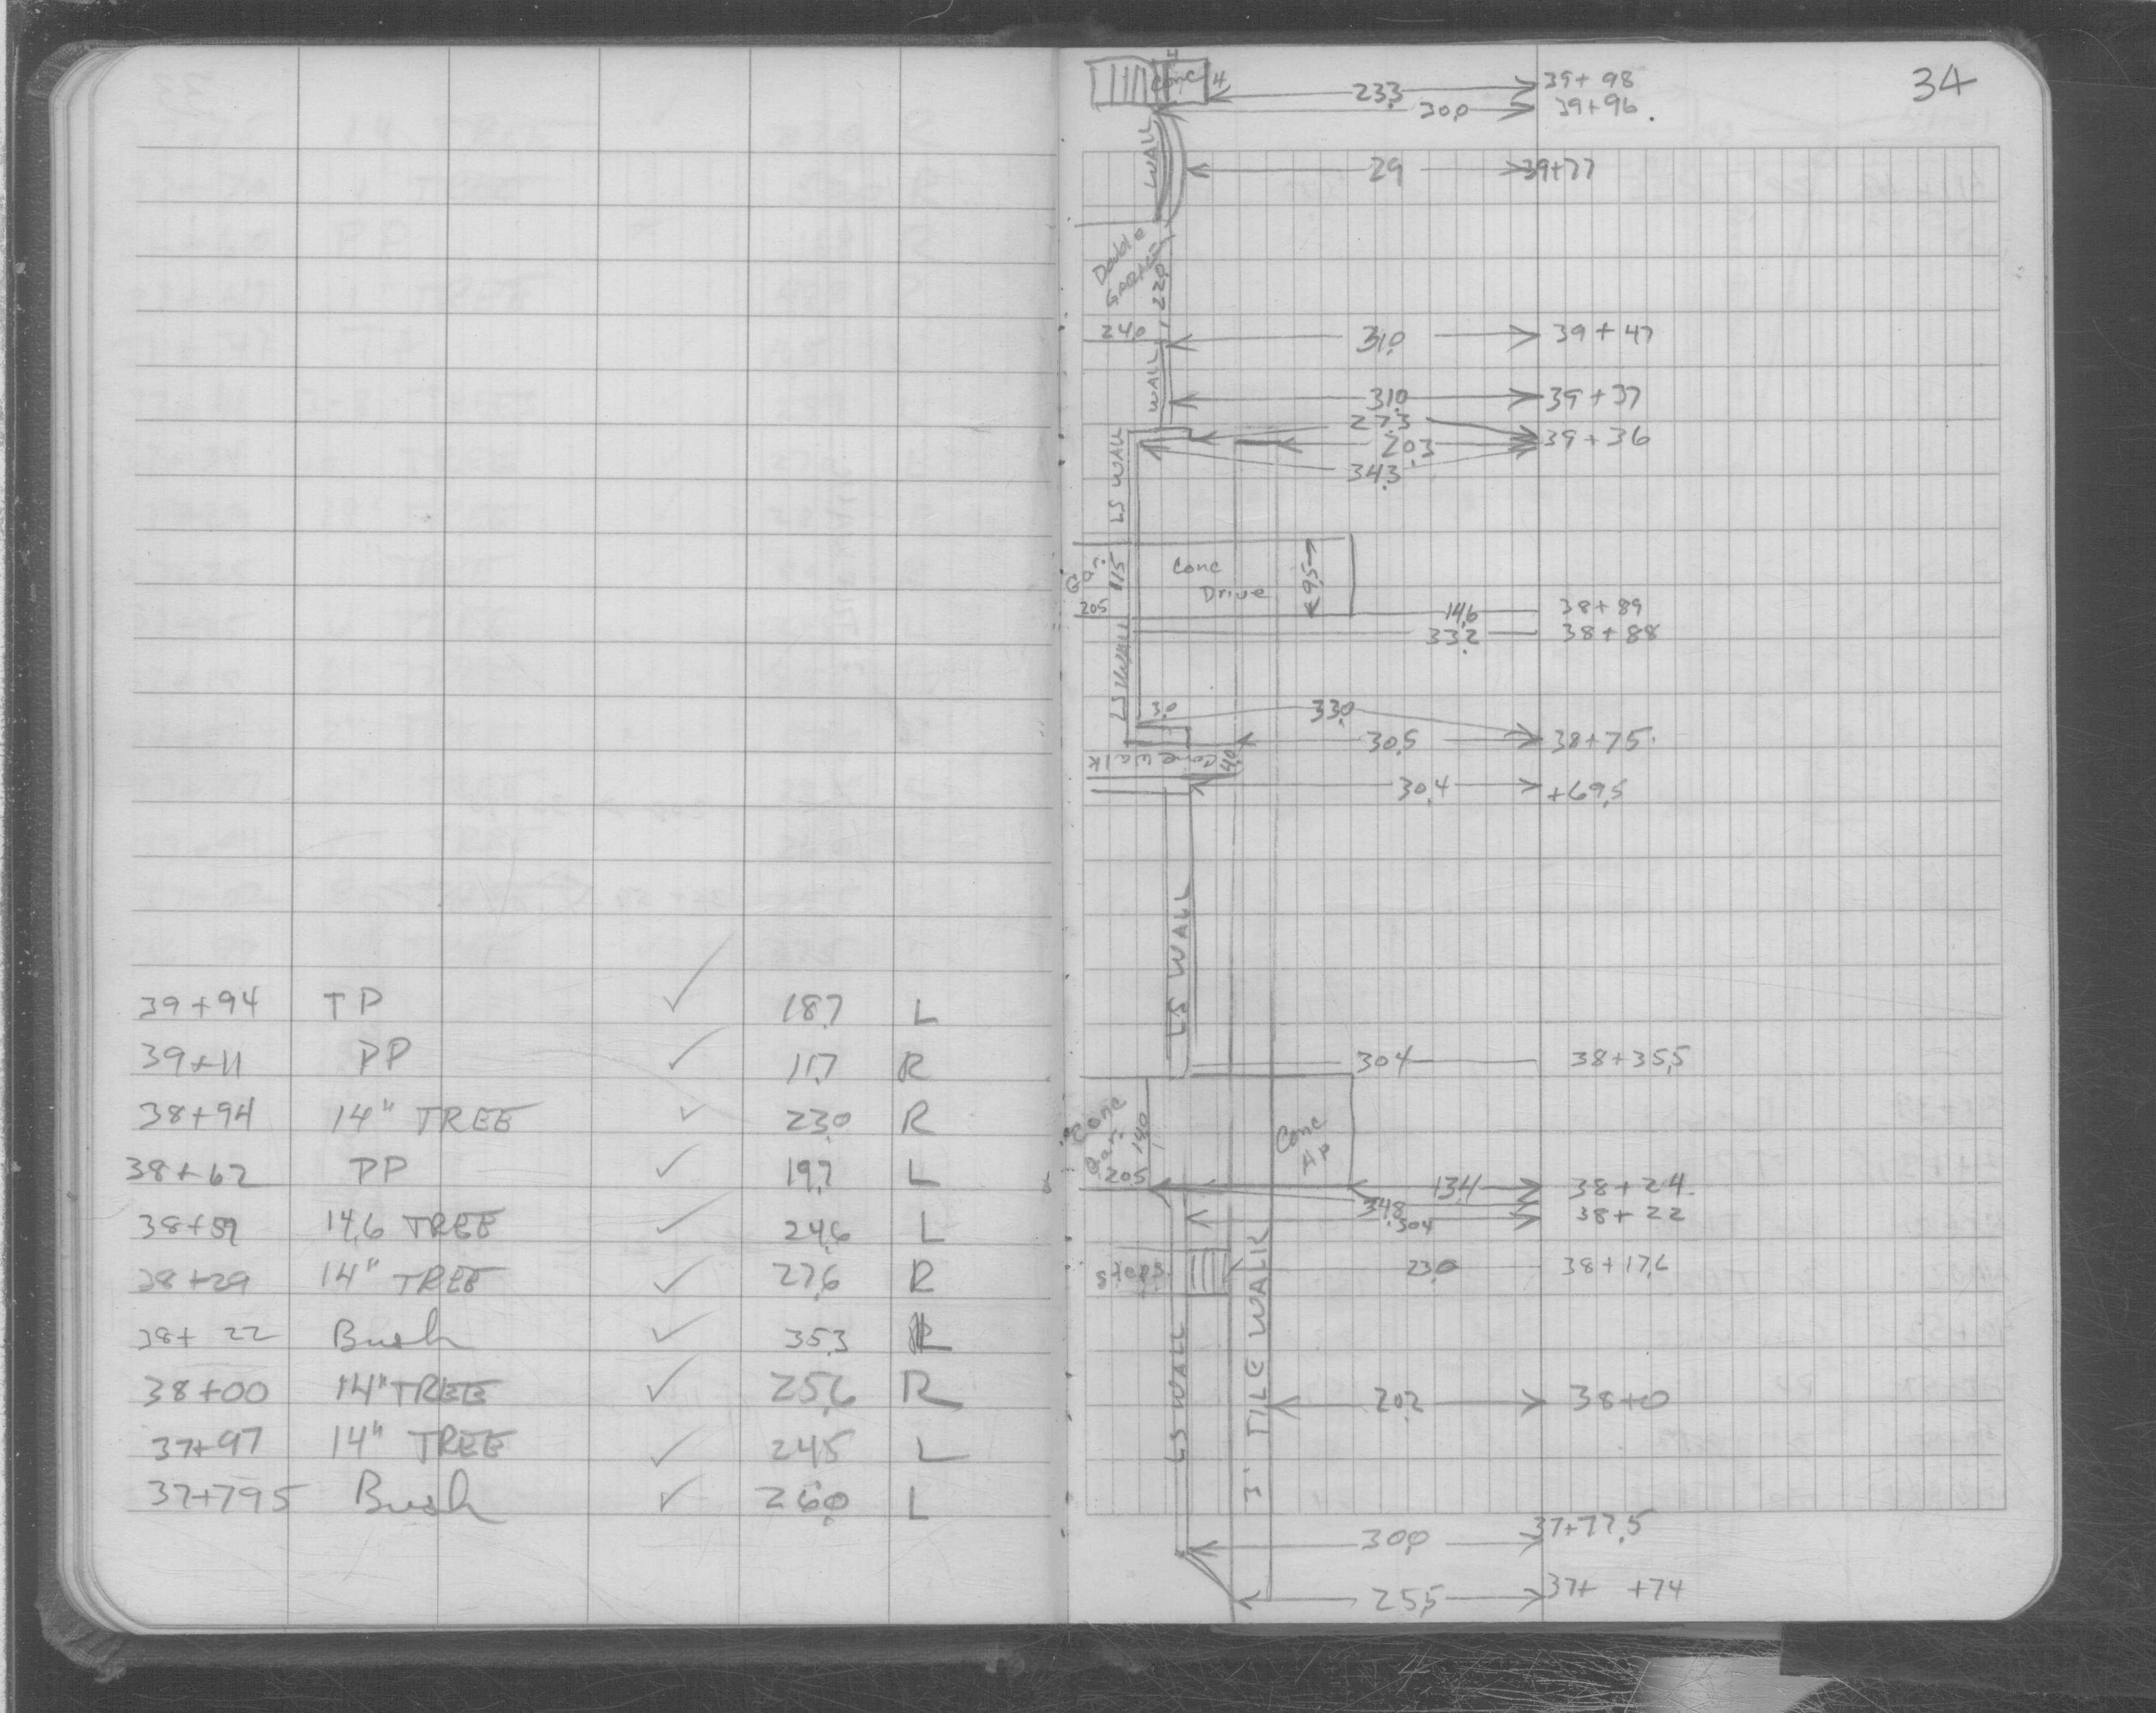 39+94 TP ✓ 18.7 L
39+11 PP ✓ 11.7 R
38+94 14" TREE ✓ 23.0 R
38+62 PP ✓ 19.7 L
38+59 14.6 TREE ✓ 24.6 L
38+29 14" TREE ✓ 27.6 R
38+22 Bush ✓ 35.3 L
38+00 14" TREE ✓ 25.6 R
37+97 14" TREE ✓ 24.5 L
37+79.5 Bush ✓ 26.0 L
34
Conc 4 23.3 39+98
30.0 39+96
WALL 29 39+77
Double
22.0
24.0 31.0 39+47
WALL 31.0 39+37
27.3
20.3 39+36
34.3
LS WALL
Gar. 11.5 Conc
Drive 9.5
20.5 14.6 38+89
33.2 38+88
LS WALL
3.0 33.0
30.5 38+75
Conc Walk 4.0
30.4 +69.5
LS WALL
30.4 38+35.5
Conc
Gar. 14.0 Conc
AP
20.5 13.4 38+24
34.8
30.4 38+22
Steps 23.0 38+17.6
LS WALL 3' TILE WALK
20.2 38+0
30.0 37+77.5
25.5 37+ +74